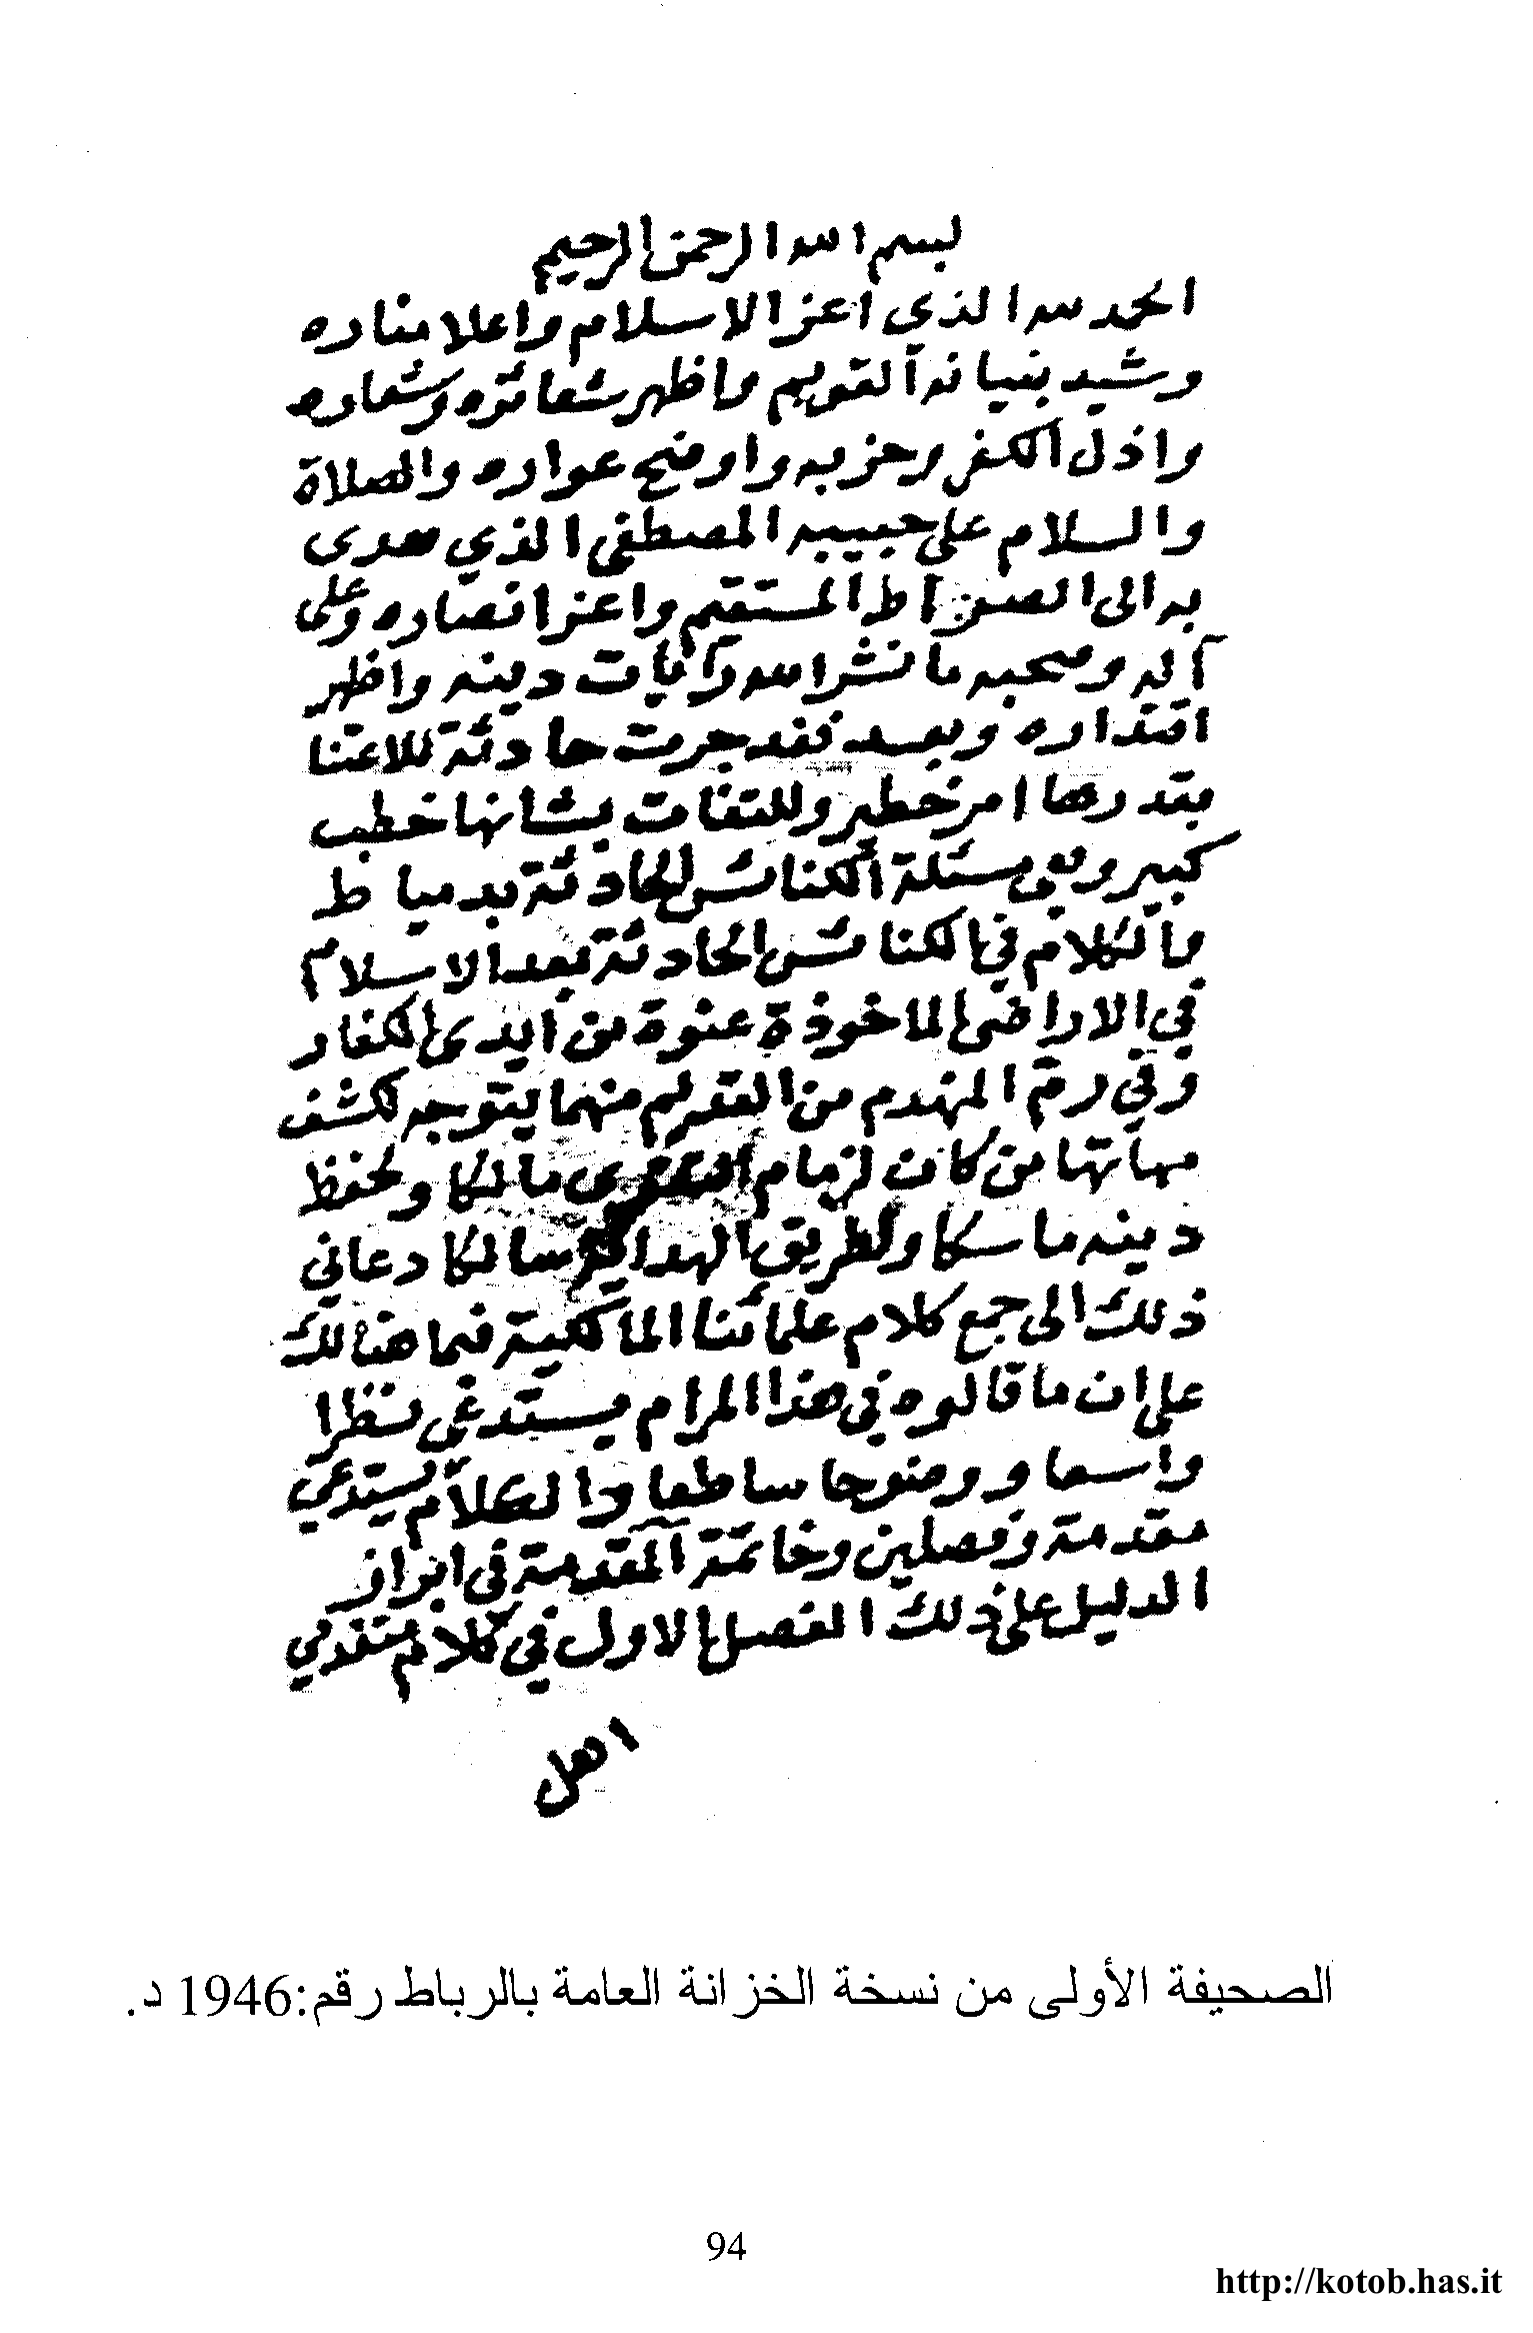 بسم الله الرحمن الرحيم
الحمد لله الذي اعز الاسلام واعلا مناره
وشيد بنيانه القويم واظهر شعائره وشعاره
واذل الكفر وحزبه واوضح عواره والصلاة
والسلام على حبيبه المصطفى الذي هدى
به الى الصراط المستقيم واعز انصاره وعلى
آله وصحبه ما نشر الله رآيات دينه واظهر
اقتداره وبعد فقد جرت حادثة للاعتنا
بقدرها امر خطير وللتفات بشانها خطب
كبير وهي مسئلة الكنائس الحادثة بدمياط
والكلام في الكنائس الحادثة بعد الاسلام
في الاراضى الماخوذة عنوة من ايدى الكفار
وفي رم المنهدم من القديم منهما يتوجه لكشف
مهاتها من كان لزمام التقوى مالكا ولحفظ
دينه ماسكا ولطريق الهداية سالكا دعاني
ذلك الى جمع كلام علمائنا المالكية فيما هنالك
على ان ما قالوه في هذا المرام يستدعى نظرا
واسعا ووضوحا ساطعا والكلام يستدعي
مقدمة وفصلين وخاتمة المقدمة في ابراز
الدليل على ذلك الفصل الاول في كلام متقدمي
اهل
الصحيفة الأولى من نسخة الخزانة العامة بالرباط رقم:1946 د.
94
http://kotob.has.it